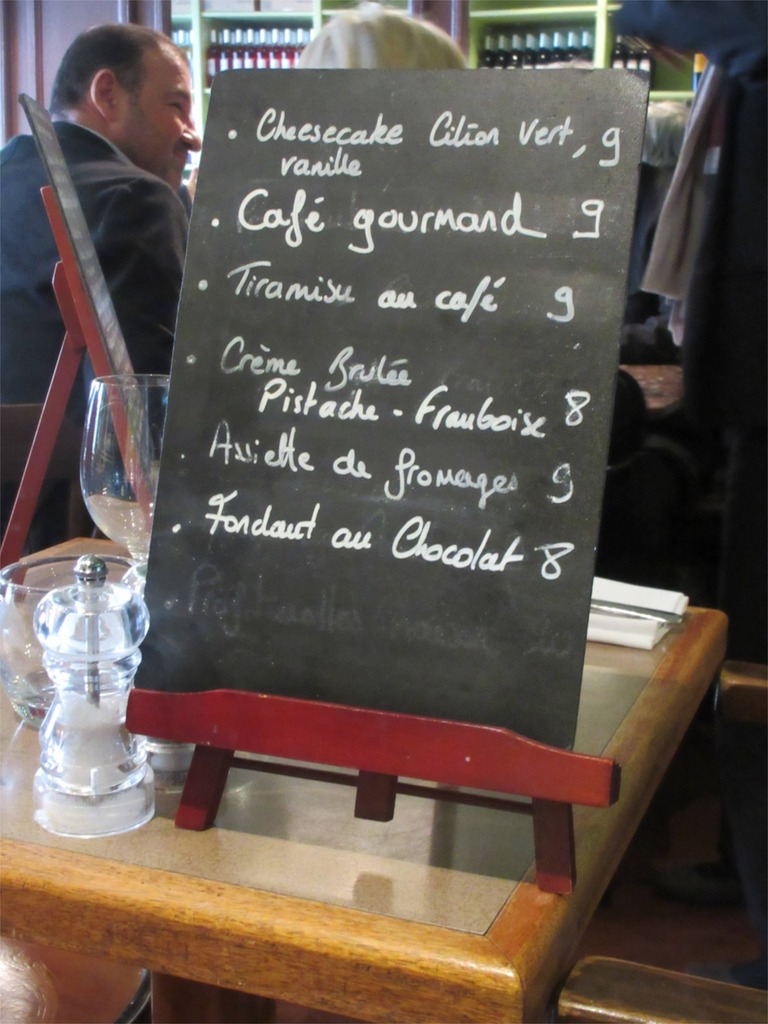 · Cheesecake Citron Vert, 9
vanille
· Café gourmand 9
· Tiramisu au café 9
· Crème Brulée
Pistache - Framboise 8
· Assiette de fromages 9
· Fondant au Chocolat 8